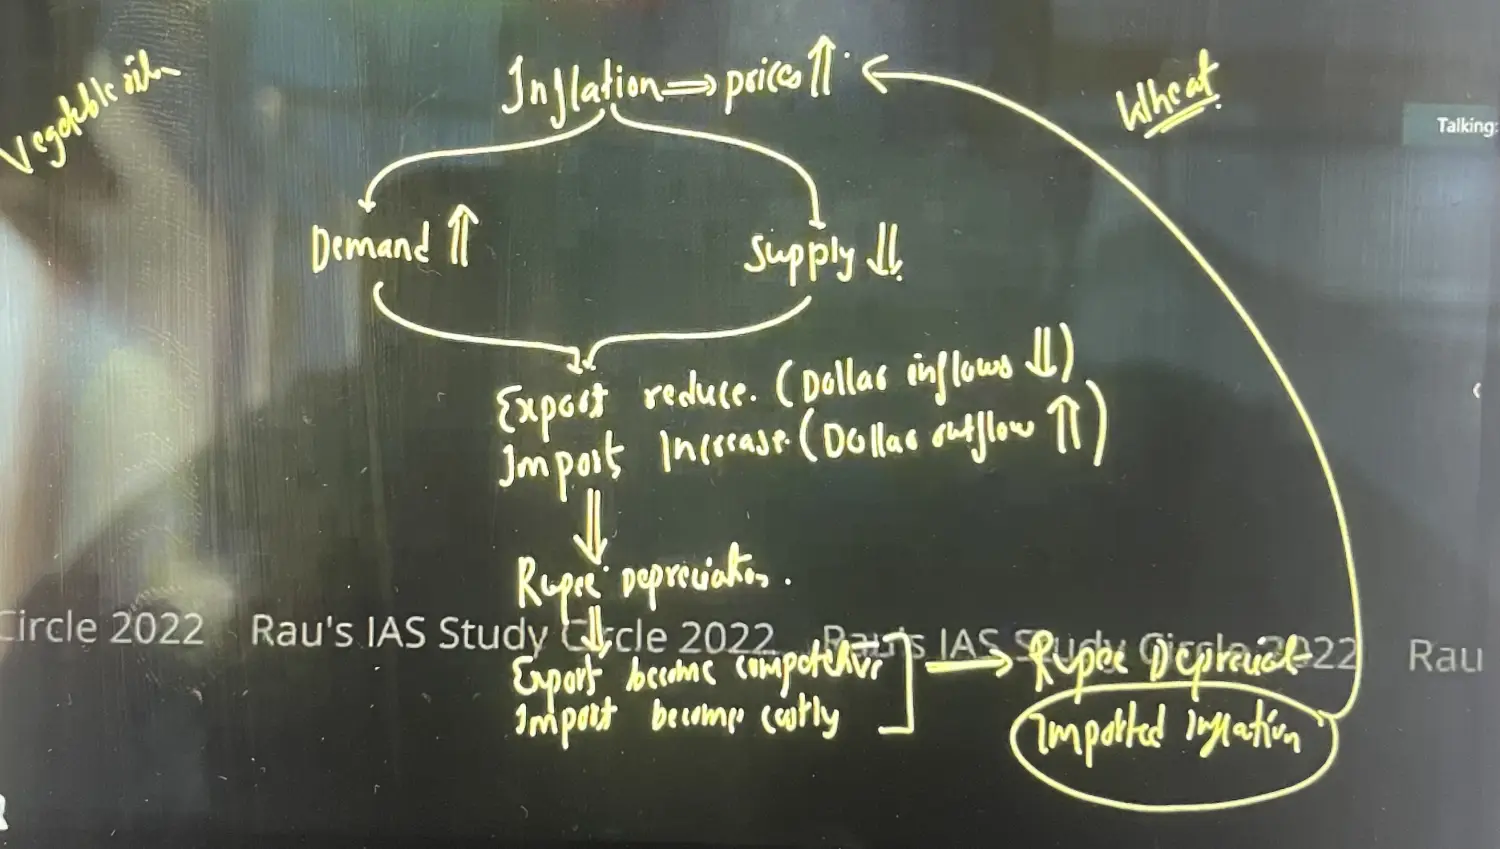 Vegetable oil
Inflation ⇒ prices ⇑
Wheat
Talking:
Demand ⇑
Supply ⇓
Export reduce. (Dollar inflows ⇓)
Import Increase. (Dollar outflow ⇑)
Rupee depreciation.
Circle 2022 Rau's IAS Study Circle 2022 Rau's IAS Study Circle 2022 Rau
Export become competitive → Rupee Depreciat
Import become costly
Imported Inflation